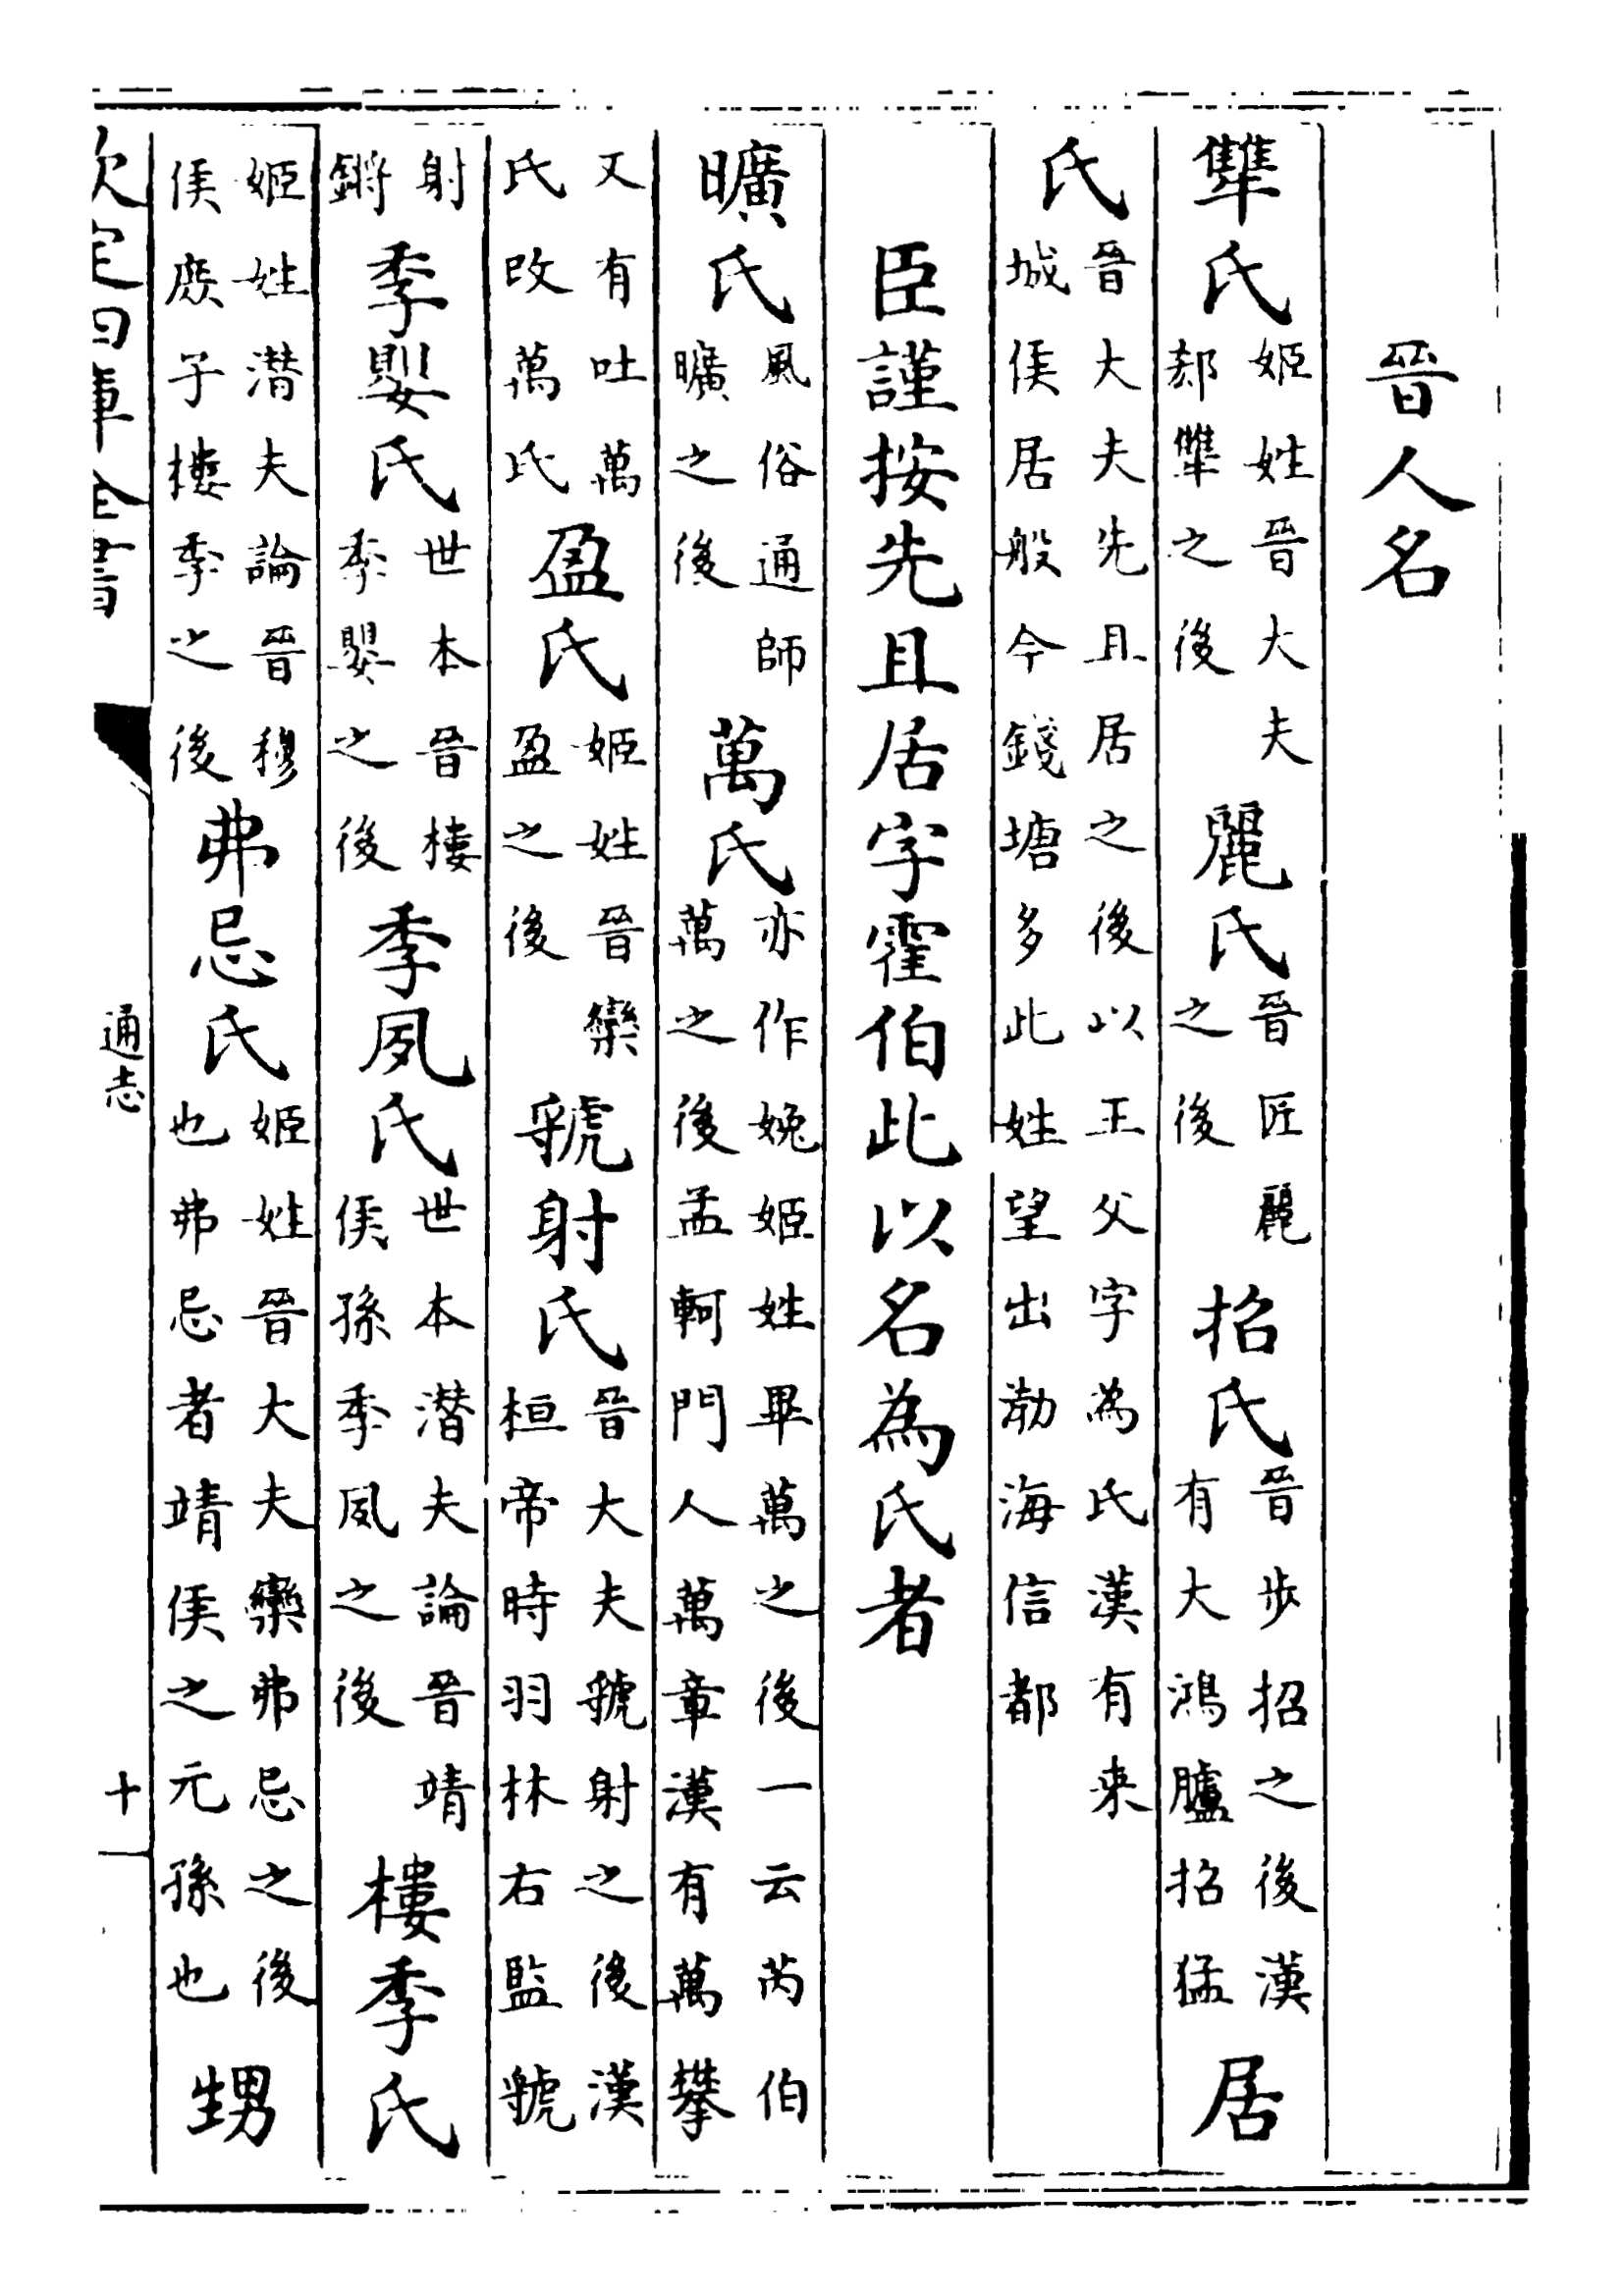 晉人名
犨氏姬姓晉大夫郄犨之後麗氏晉匠麗之後招氏晉步招之後漢有大鴻臚招猛居
氏晉大夫先且居之後以王父字為氏漢有来城侯居般今錢塘多此姓望出渤海信都
臣謹按先且居字霍伯此以名為氏者
曠氏風俗通師曠之後萬氏亦作娩姬姓畢萬之後一云芮伯萬之後孟軻門人萬章漢有萬攀
又有吐萬氏改萬氏盈氏姬姓晉欒盈之後虢射氏晉大夫虢射之後漢桓帝時羽林右監虢
射鏘季嬰氏世本晉棲季嬰之後季夙氏世本潜夫論晉靖侯孫季夙之後棲季氏
姬姓潜夫論晉穆侯庶子棲季之後弗忌氏姬姓晉大夫欒弗忌之後也弗忌者靖侯之元孫也甥
欽定四庫全書
通志
十